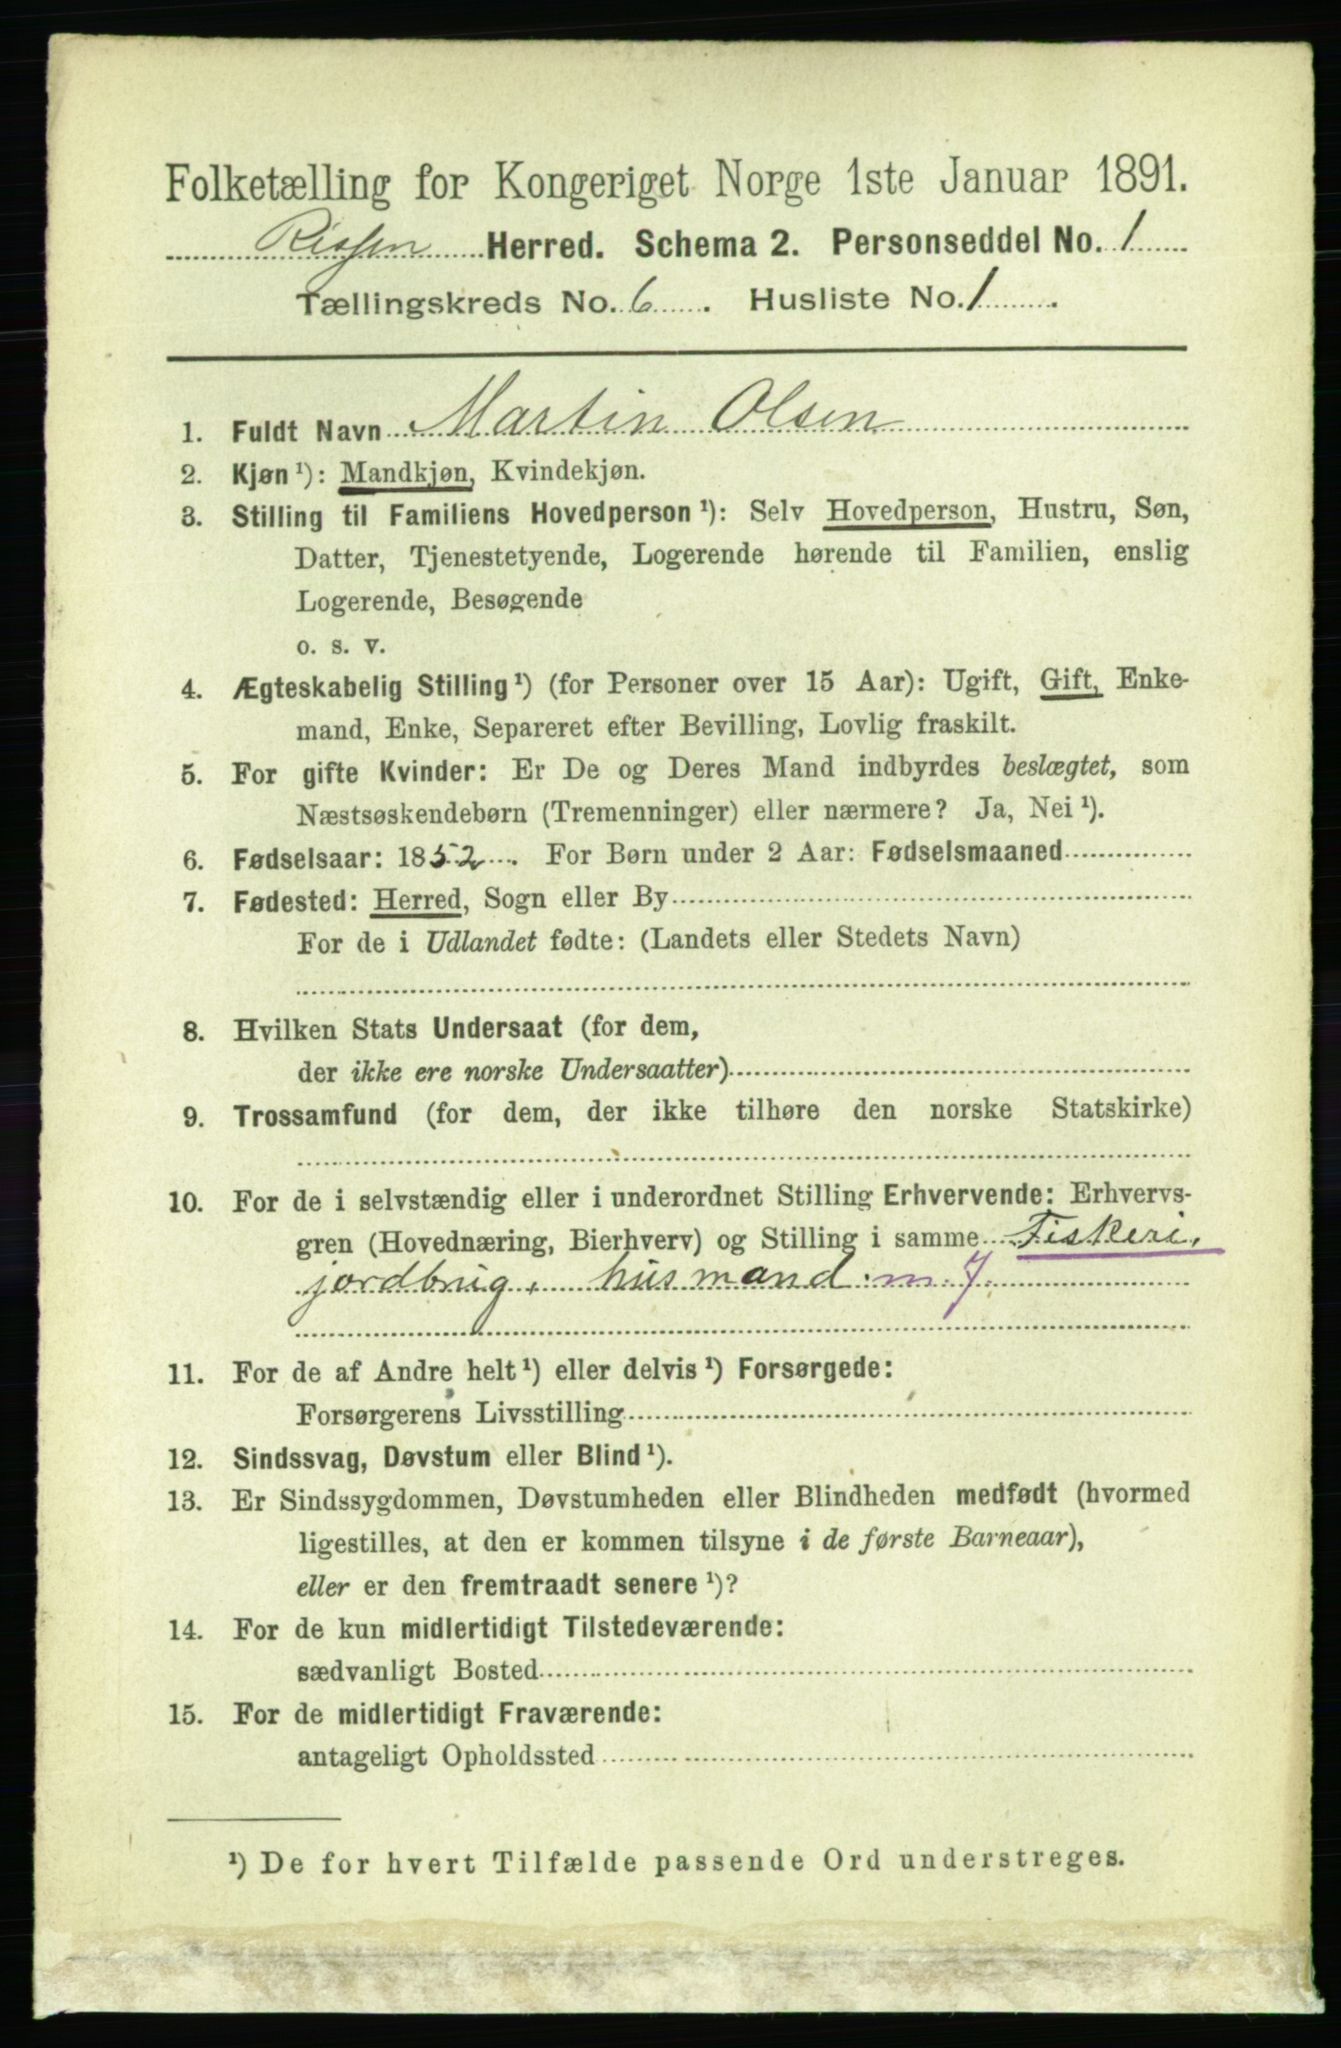 Folketælling for Kongeriget Norge 1ste Januar 1891.
Rissen Herred. Schema 2. Personseddel No. 1
Tællingskreds No. 6. Husliste No. 1.
1. Fuldt Navn Martin Olsen
2. Kjøn ¹): Mandkjøn, Kvindekjøn.
3. Stilling til Familiens Hovedperson ¹): Selv Hovedperson, Hustru, Søn,
Datter, Tjenestetyende, Logerende hørende til Familien, enslig
Logerende, Besøgende
o. s. v.
4. Ægteskabelig Stilling ¹) (for Personer over 15 Aar): Ugift, Gift, Enke-
mand, Enke, Separeret efter Bevilling, Lovlig fraskilt.
5. For gifte Kvinder: Er De og Deres Mand indbyrdes beslægtet, som
Næstsøskendebørn (Tremenninger) eller nærmere? Ja, Nei ¹).
6. Fødselsaar: 1852. For Børn under 2 Aar: Fødselsmaaned
7. Fødested: Herred, Sogn eller By
For de i Udlandet fødte: (Landets eller Stedets Navn)
8. Hvilken Stats Undersaat (for dem,
der ikke ere norske Undersaatter)
9. Trossamfund (for dem, der ikke tilhøre den norske Statskirke)
10. For de i selvstændig eller i underordnet Stilling Erhvervende: Erhvervs-
gren (Hovednæring, Bierhverv) og Stilling i samme Fiskeri,
jordbrug, husmand m. J.
11. For de af Andre helt ¹) eller delvis ¹) Forsørgede:
Forsørgerens Livsstilling
12. Sindssvag, Døvstum eller Blind ¹).
13. Er Sindssygdommen, Døvstumheden eller Blindheden medfødt (hvormed
ligestilles, at den er kommen tilsyne i de første Barneaar),
eller er den fremtraadt senere ¹)?
14. For de kun midlertidigt Tilstedeværende:
sædvanligt Bosted
15. For de midlertidigt Fraværende:
antageligt Opholdssted
¹) De for hvert Tilfælde passende Ord understreges.